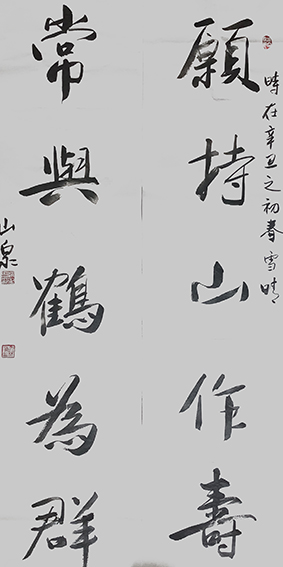 願持山作壽
時在辛丑之初春雪晴
常與鶴為群
山泉